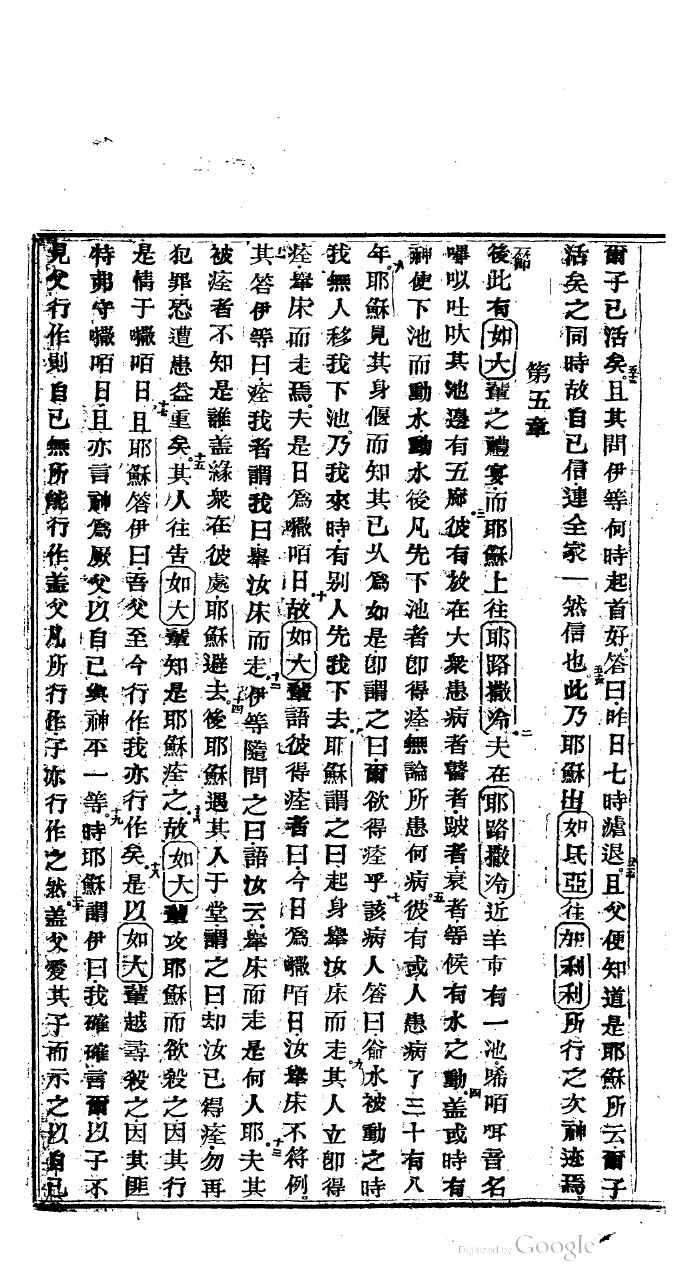 爾子已活矣。且其問伊等何時起首好。答曰昨日七時瘧退。且父便知道是耶穌所云爾子
活矣之同時故自己信連全家一然信也。此乃耶穌出如氐亞往加利利所行之次神迹焉。
第五章
一節
後此有如大輩之禮宴而耶穌上往耶路撒冷。夫在耶路撒冷近羊市有一池唏咟咡音名
嗶㕥吐𠯈其池邊有五廊。彼有放在大衆患病者瞽者跛者衰者等候有水之動。盖或時有
神使下池而動水動水後凡先下池者卽得痊無論所患何病。彼有或人患病了三十有八
年。耶穌見其身偃而知其已乆爲如是卽謂之曰爾欲得痊乎。該病人答曰爺水被動之時
我無人移我下池。乃我來時有别人先我下去。耶穌謂之曰起身舉汝床而走。其人立卽得
痊舉床而走焉。夫是日爲𡃤咟日。故如大輩語彼得痊者曰今日爲𡃤咟日汝舉床不符例。
其答伊等曰痊我者謂我曰舉汝床而走。伊等隨問之曰語汝云舉床而走是何人耶。夫其
被痊者不知是誰盖緣衆在彼處耶穌避去。後耶穌遇其人于堂謂之曰却汝已得痊勿再
犯罪恐遭患益重矣。其人往告如大輩知是耶穌痊之。故如大輩攻耶穌而欲殺之因其行
是情于𡃤咟日。且耶穌答伊曰吾父至今行作我亦行作矣。是以如大輩越尋殺之因其匪
特弗守𡃤咟日且亦言神爲厥父以自己與神平一等。時耶穌謂伊曰我確確言爾以子不
見父行作則自己無所能行作盖父凡所行作子亦行作之然。盖父愛其子而示之以自己
Digitized by Google